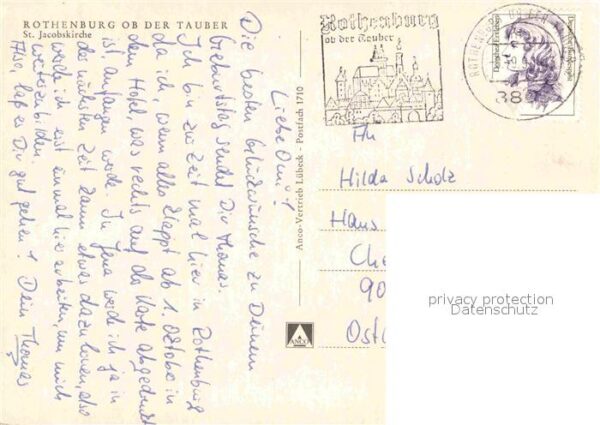 ROTHENBURG OB DER TAUBER
St. Jacobskirche
Liebe Omi!
Die besten Glückwünsche zu Deinem
Geburtstag sendet Dir Thomas.
Ich bin zur Zeit mal hier in Rothenburg
da ich, wenn alles klappt ab 1. Oktober in
dem Hotel was rechts auf der Karte abgedruckt
ist, anfangen werde. In Jena werde ich ja in
der nächsten Zeit kaum etwas dazu lernen, also
werde ich erst einmal hier arbeiten, um mich
weiterzubilden.
Also, laß es Dir gut gehen! Dein Thomas
Anco-Vertrieb Lübeck - Postfach 1710
ANCO
Rothenburg
ob der Tauber
ROTHENBURG OB DER
38
Deutsche Bundespost
An
Hilda Scholz
Hans
Che
90
Ostd
privacy protection
Datenschutz